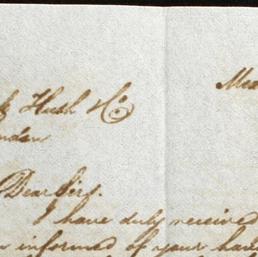 Mex
& Huth & Co
ondon
Dear Sirs.
I have duly received
informed of your hav